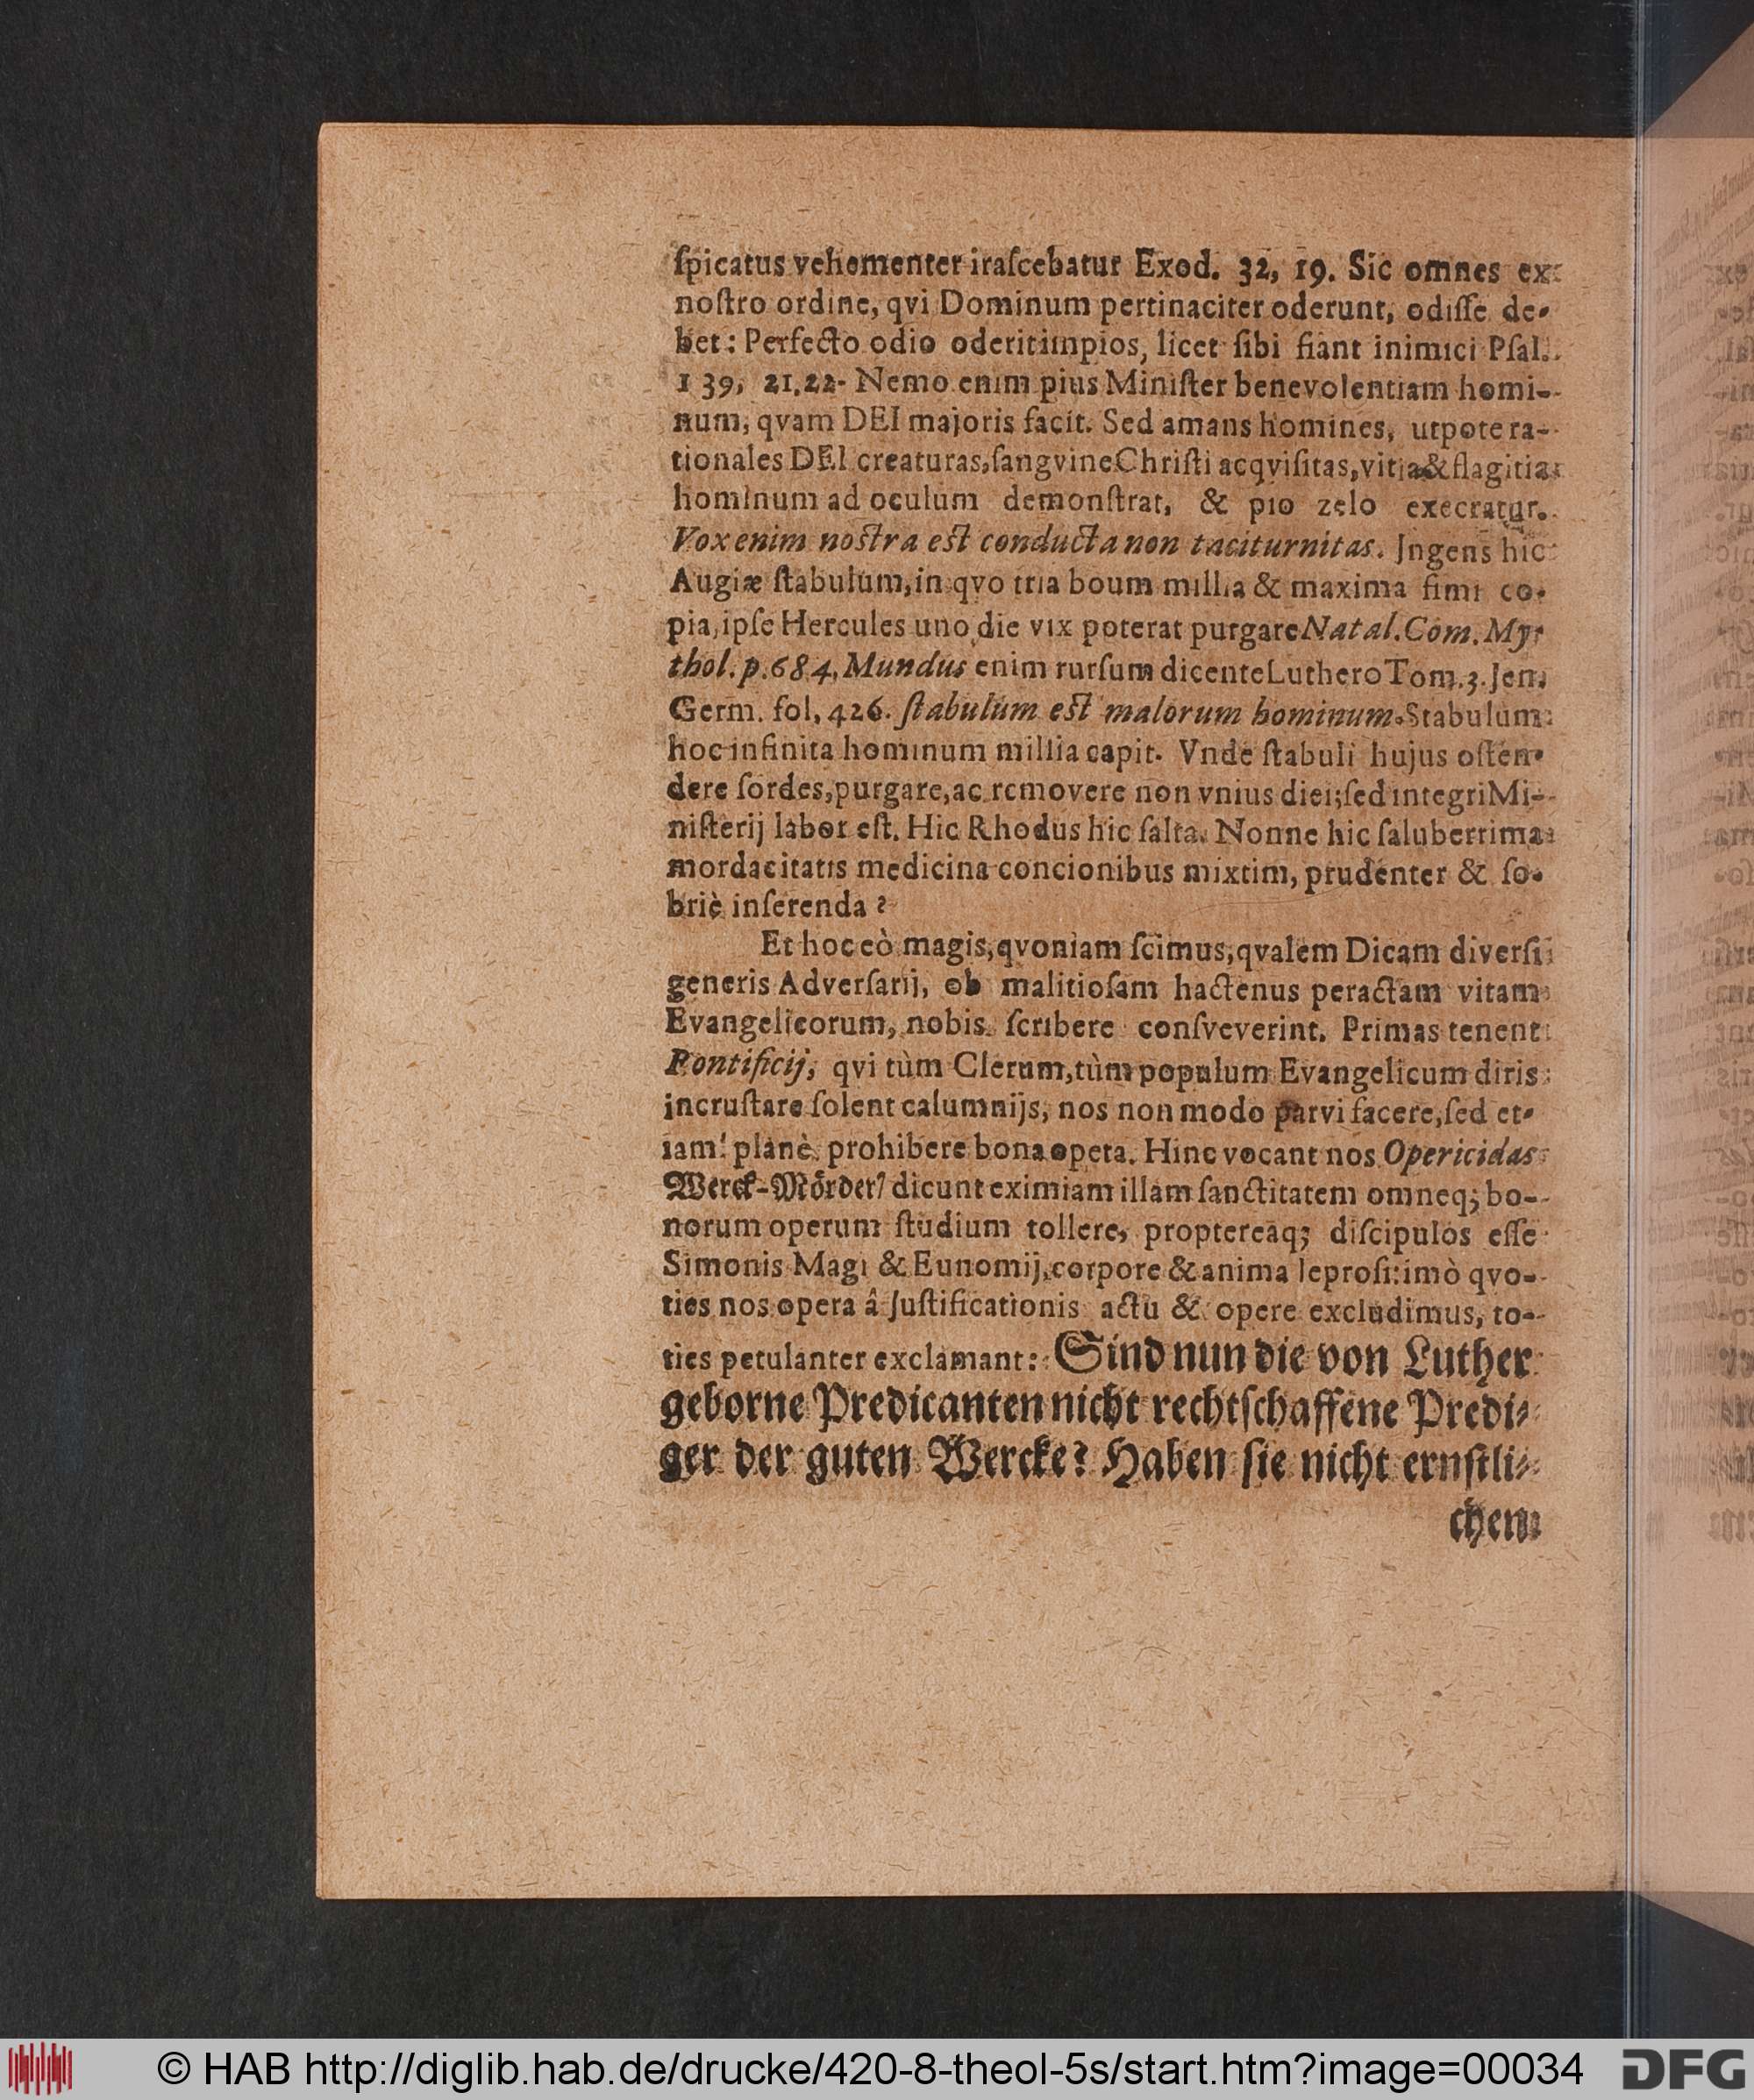 ſpicatus vehementer iraſcebatur Exod. 32, 19. Sic omnes ex
noſtro ordine, qvi Dominum pertinaciter oderunt, odiſſe de-
bet: Perfecto odio oderit impios, licet ſibi fiant inimici Pſal.
139, 21.22. Nemo enim pius Miniſter benevolentiam homi-
num, qvam DEI majoris facit. Sed amans homines, utpote ra-
tionales DEI creaturas, ſangvine Chriſti acqviſitas, vitia & flagitia
hominum ad oculum demonſtrat, & pio zelo execratur.
Vox enim noſtra eſt conducta non taciturnitas. Jngens hic
Augiæ ſtabulum, in qvo tria boum millia & maxima fimi co-
pia, ipſe Hercules uno die vix poterat purgare Natal. Com. My-
thol. p. 684. Mundus enim rurſum dicente Luthero Tom. 3. Jen.
Germ. fol. 426. ſtabulum eſt malorum hominum. Stabulum
hoc infinita hominum millia capit. Vnde ſtabuli hujus oſten-
dere ſordes, purgare, ac removere non vnius diei; ſed integri Mi-
niſterij labor eſt. Hic Rhodus hic ſalta. Nonne hic ſaluberrima
mordacitatis medicina concionibus mixtim, prudenter & ſo-
briè inſerenda?
Et hoc eò magis, qvoniam ſcimus, qvalem Dicam diverſi
generis Adverſarij, ob malitioſam hactenus peractam vitam
Evangelicorum, nobis ſcribere conſveverint. Primas tenent
Pontificij, qvi tùm Clerum, tùm populum Evangelicum diris
incruſtare ſolent calumnijs, nos non modo parvi facere, ſed et-
iam planè prohibere bona opera. Hinc vocant nos Opericidas
Werck-Mörder/ dicunt eximiam illam ſanctitatem omneq; bo-
norum operum ſtudium tollere, proptereaq; diſcipulos eſſe
Simonis Magi & Eunomij, corpore & anima leproſi: imò qvo-
ties nos opera â Juſtificationis actu & opere excludimus, to-
ties petulanter exclamant: Sind nun die von Luther
geborne Predicanten nicht rechtſchaffene Predi-
ger der guten Wercke? Haben ſie nicht ernſtli-
chen
© HAB http://diglib.hab.de/drucke/420-8-theol-5s/start.htm?image=00034
DFG